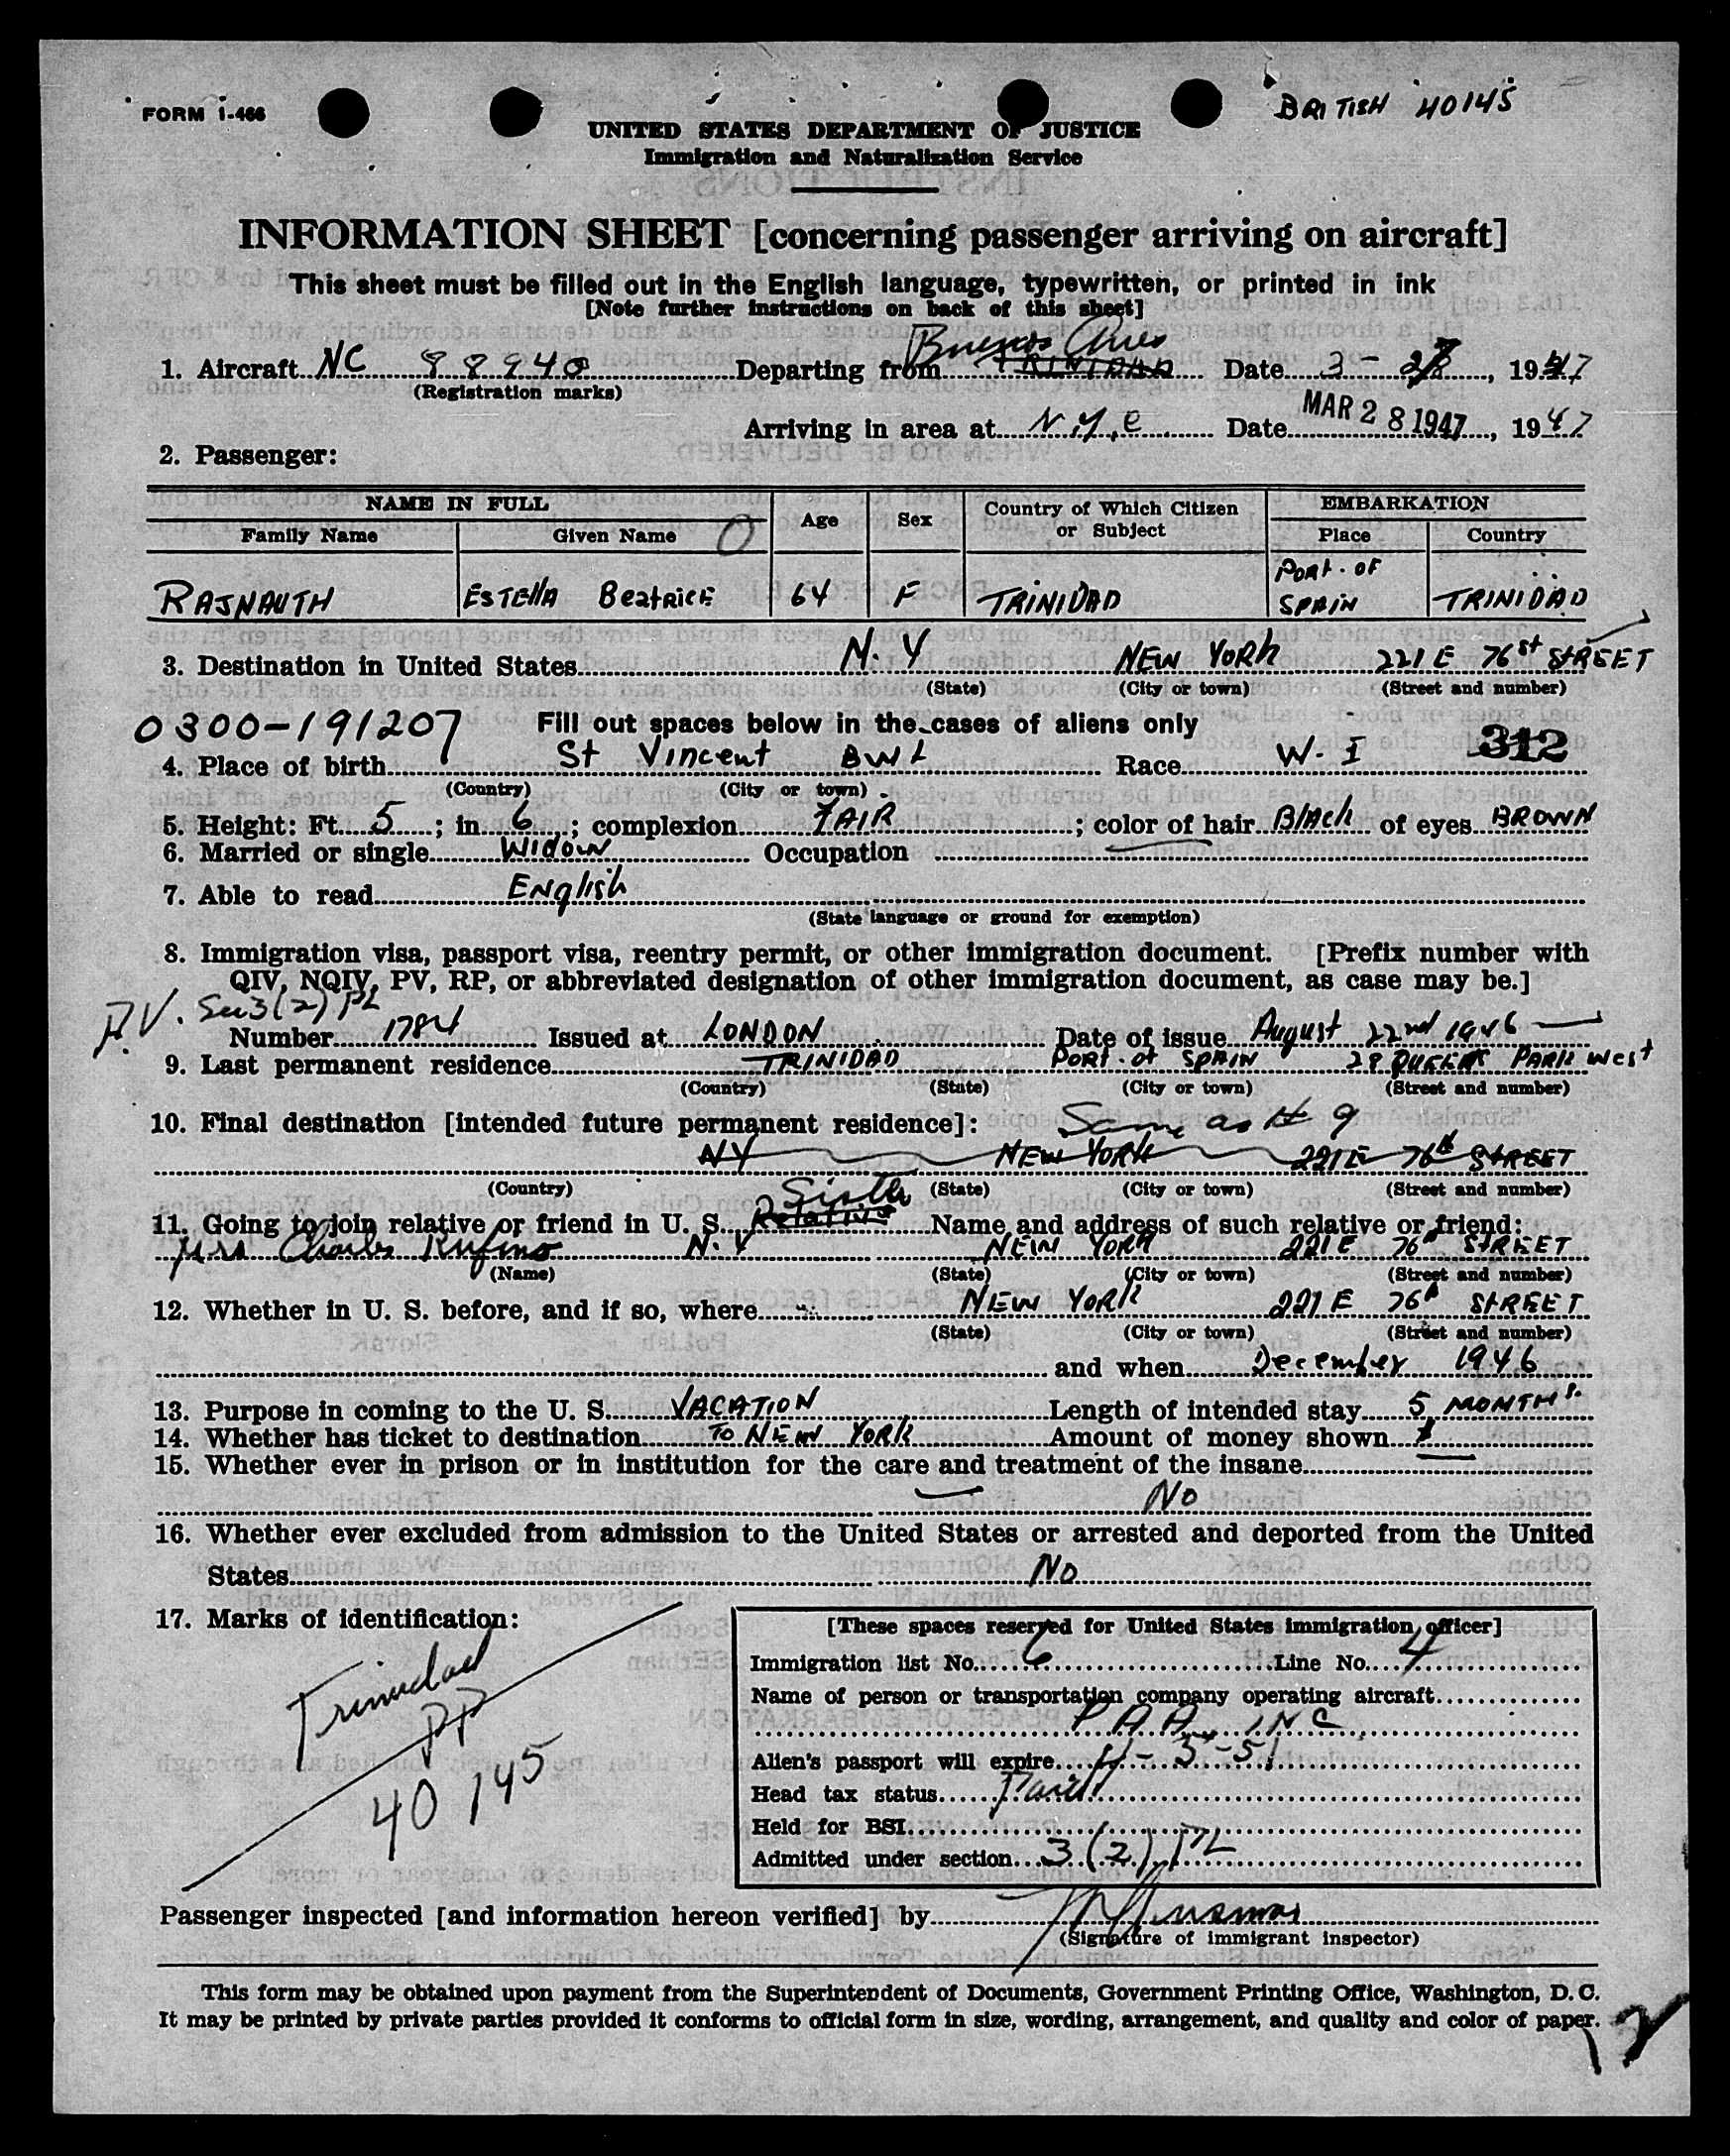 BRITISH 40145
FORM I-466
UNITED STATES DEPARTMENT OF JUSTICE
Immigration and Naturalization Service
INFORMATION SHEET [concerning passenger arriving on aircraft]
This sheet must be filled out in the English language, typewritten, or printed in ink
[Note further instructions on back of this sheet]
Buenos Aires
1. Aircraft NC 88940 Departing from TRINIDAD Date 3 - 27, 1947
(Registration marks)
Arriving in area at N.Y.C Date MAR 28 1947, 1947
2. Passenger:
NAME IN FULL Age Sex Country of Which Citizen or Subject EMBARKATION
Family Name Given Name O Place Country
RAJNAUTH ESTELLA BEATRICE 64 F TRINIDAD PORT-OF SPAIN TRINIDAD
3. Destination in United States N.Y NEW YORK 221 E 76st STREET
(State) (City or town) (Street and number)
0300-191207 Fill out spaces below in the cases of aliens only 312
4. Place of birth St Vincent BWI Race W-I
(Country) (City or town)
5. Height: Ft. 5; in. 6; complexion FAIR; color of hair Black of eyes BROWN
6. Married or single Widow Occupation
7. Able to read English
(State language or ground for exemption)
8. Immigration visa, passport visa, reentry permit, or other immigration document. [Prefix number with
QIV, NQIV, PV, RP, or abbreviated designation of other immigration document, as case may be.]
P.V. Sec 3(2) PL
Number 1784 Issued at LONDON Date of issue August 22nd 1946
9. Last permanent residence TRINIDAD PORT-of SPAIN 28 QUEENS PARK West
(Country) (State) (City or town) (Street and number)
10. Final destination [intended future permanent residence]: Same as # 9
NY NEW YORK 221E 76th STREET
(Country) (State) (City or town) (Street and number)
Sister
11. Going to join relative or friend in U. S. Relative Name and address of such relative or friend:
Mrs Charles Rufino N.Y NEW YORK 221E 76th STREET
(Name) (State) (City or town) (Street and number)
12. Whether in U. S. before, and if so, where NEW YORK 221E 76th STREET
(State) (City or town) (Street and number)
and when December 1946
13. Purpose in coming to the U. S. VACATION Length of intended stay 5 MONTHS.
14. Whether has ticket to destination TO NEW YORK Amount of money shown
15. Whether ever in prison or in institution for the care and treatment of the insane
No
16. Whether ever excluded from admission to the United States or arrested and deported from the United
States No
17. Marks of identification:
Trinidad
PP
40145
[These spaces reserved for United States immigration officer]
Immigration list No. 6 Line No. 4
Name of person or transportation company operating aircraft
P A A INC
Alien's passport will expire 4-5-51
Head tax status Paid
Held for BSI
Admitted under section 3(2) PL
Passenger inspected [and information hereon verified] by
(Signature of immigrant inspector)
This form may be obtained upon payment from the Superintendent of Documents, Government Printing Office, Washington, D. C.
It may be printed by private parties provided it conforms to official form in size, wording, arrangement, and quality and color of paper.
12